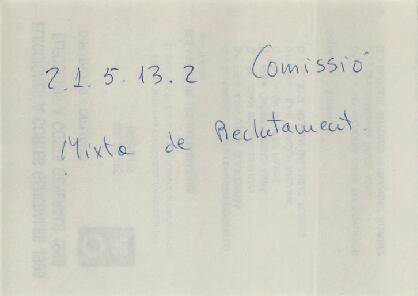 2.1.5.13.2 Comissió
Mixta de Reclutament.